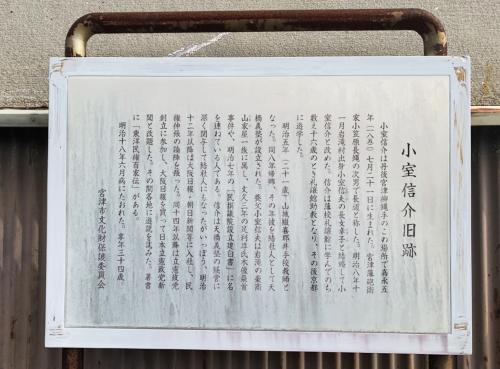 小室信介旧跡
小室信介は丹後宮津柳縄手のこの場所で嘉永五
年(一八五二)七月二十一日に生まれた。宮津藩砲術
家小笠原長縄の次男で長道と称した。明治八年十
一月岩滝村出身小室信夫の長女幸子と結婚して小
室信介と改めた。信介は藩校礼譲館に学んでのち
数え十六歳のとき礼譲館助教となり、その後京都
に遊学した。
明治五年(二十一歳)山城綴喜郡井手校教師と
なった。同八年帰郷、その年彼を結社人として天
橋義塾が設立された。養父小室信夫は岩滝の豪商
山家屋一族に属し、文久三年の足利尊氏木像梟首
事件や、明治七年の「民撰議院設立建白書」に名
を連ねている人である。信介は天橋義塾の経営に
深く関与して結社人にもなったがいっぽう、明治
十二年以降は大阪日報・朝日新聞等に入社し、民
権伸張の論陣を張った。同十四年以降は立憲政党
創立に参加し、大阪日報を買って日本立憲政党新
聞と改題した。その間各地に遊説を試みた。著書
に「東洋民権百家伝」がある。
明治十八年八月病にたおれた。享年三十四歳。
宮津市文化財保護委員会